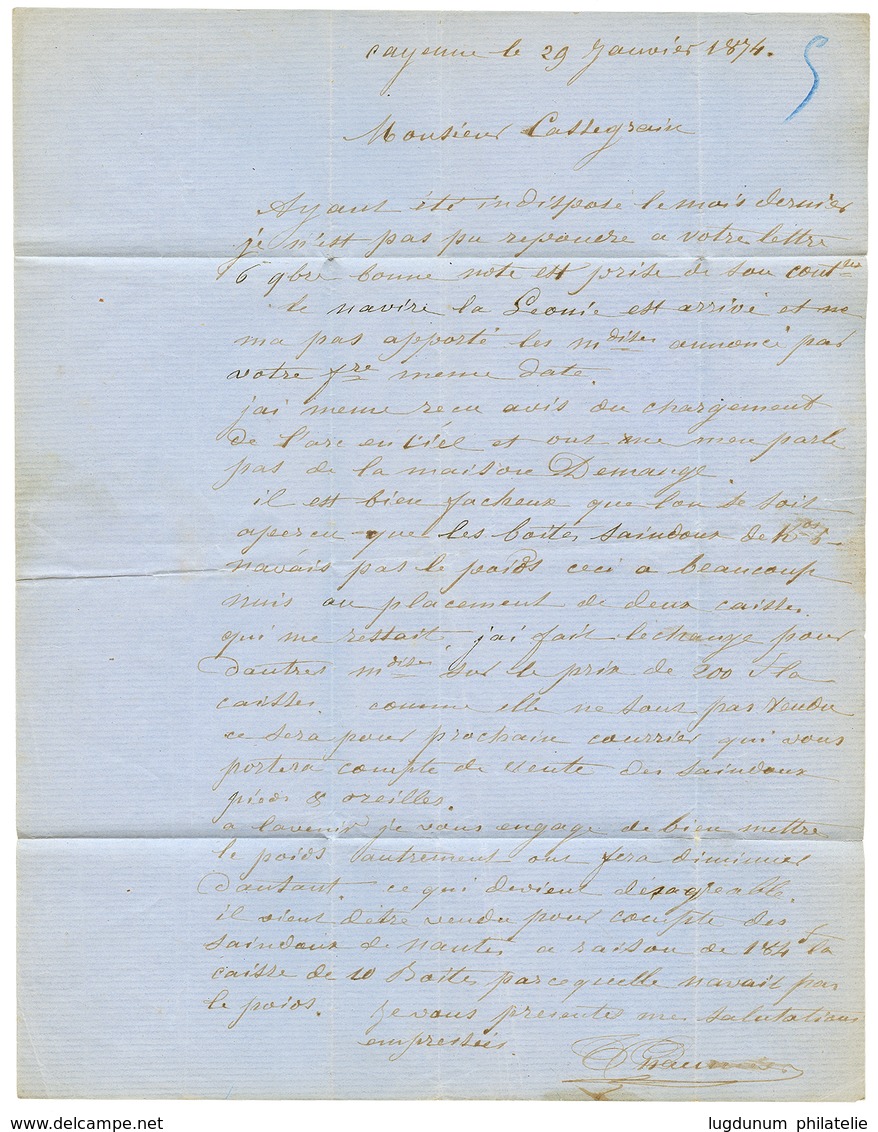 Cayenne le 29 Janvier 1874.
5
Monsieur Cassegrain
Ayant été indisposé le mois dernier
je n'est pas pu repondre a votre lettre
6 9bre bonne note est prise de son
le navire la Leonie est arrivé et ne
ma pas apporté les mdises annoncé par
votre fre meme date.
jai meme recu avis du chargement
de l'arc en ciel et ont ne men parle
pas de la maison Demange.
il est bien facheux que lon se soit
apercu que les boites saindoux de
navais pas le poids ceci a beaucoup
nuis au placement de deux caisses
qui me restait. jai fait lechange pour
dautres mdises sur le prix de 200 f la
caisses. comme elle ne sont pas vendu
ce sera pour prochain courrier qui vous
portera compte de vente des saindoux
pieds & oreilles.
a lavenir je vous engage de bien mettre
le poids autrement ont fera diminuer
dautant ce qui devient désagreable.
il vient d'être vendu pour compte des
saindoux de nantes a raison de 184 f la
caisse de 10 Boites parcequelle navait pas
le poids. Je vous presente mes salutations
empressées.
delcampe.net
lugdunum philatelie